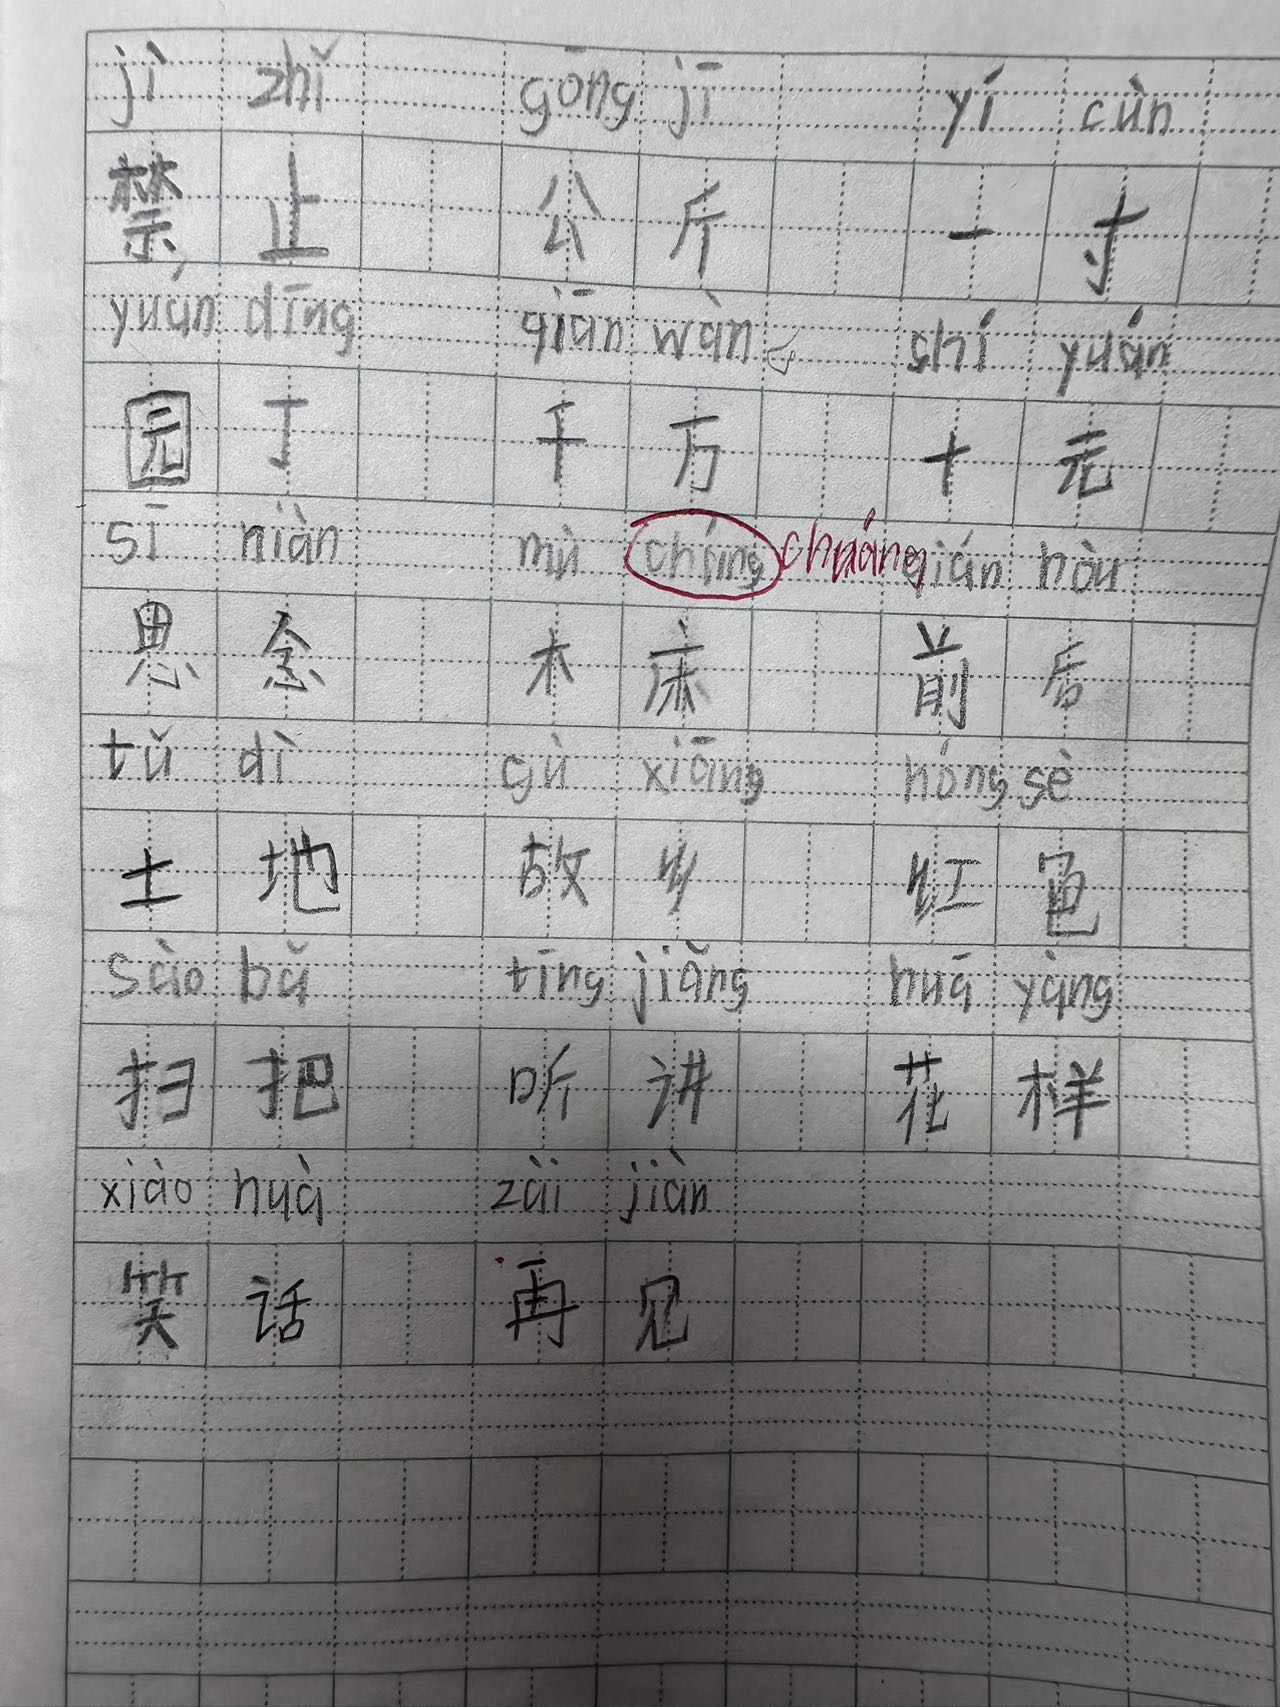 jì zhǐ gōng jī yí cùn
禁止 公斤 一寸
yuán dīng qiān wàn shí yuán
园丁 千万 十元
sī niàn mù chíng chuáng qián hòu
思念 木床 前后
tǔ dì gù xiāng hóng sè
土地 故乡 红色
sào bǎ tīng jiǎng huā yàng
扫把 听讲 花样
xiào huà zài jiàn
笑话 再见